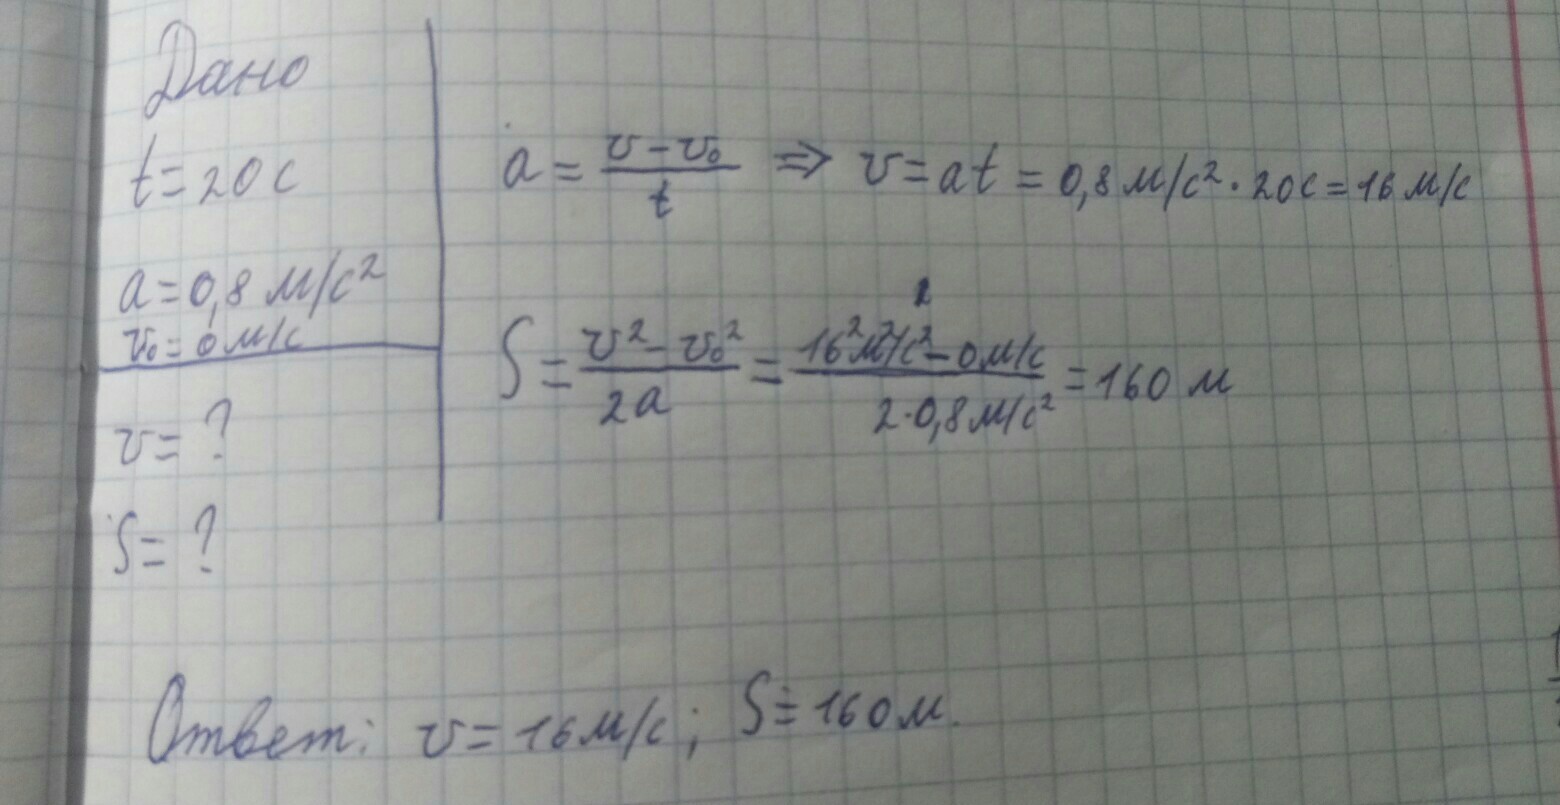 Дано
t = 20 с
a = 0,8 м/с²
v₀ = 0 м/с
v = ?
S = ?
a = (v - v₀)/t ⇒ v = at = 0,8 м/с² · 20 с = 16 м/с
S = (v² - v₀²)/2a = (16² м²/с² - 0 м/с)/(2 · 0,8 м/с²) = 160 м
Ответ: v = 16 м/с; S = 160 м.